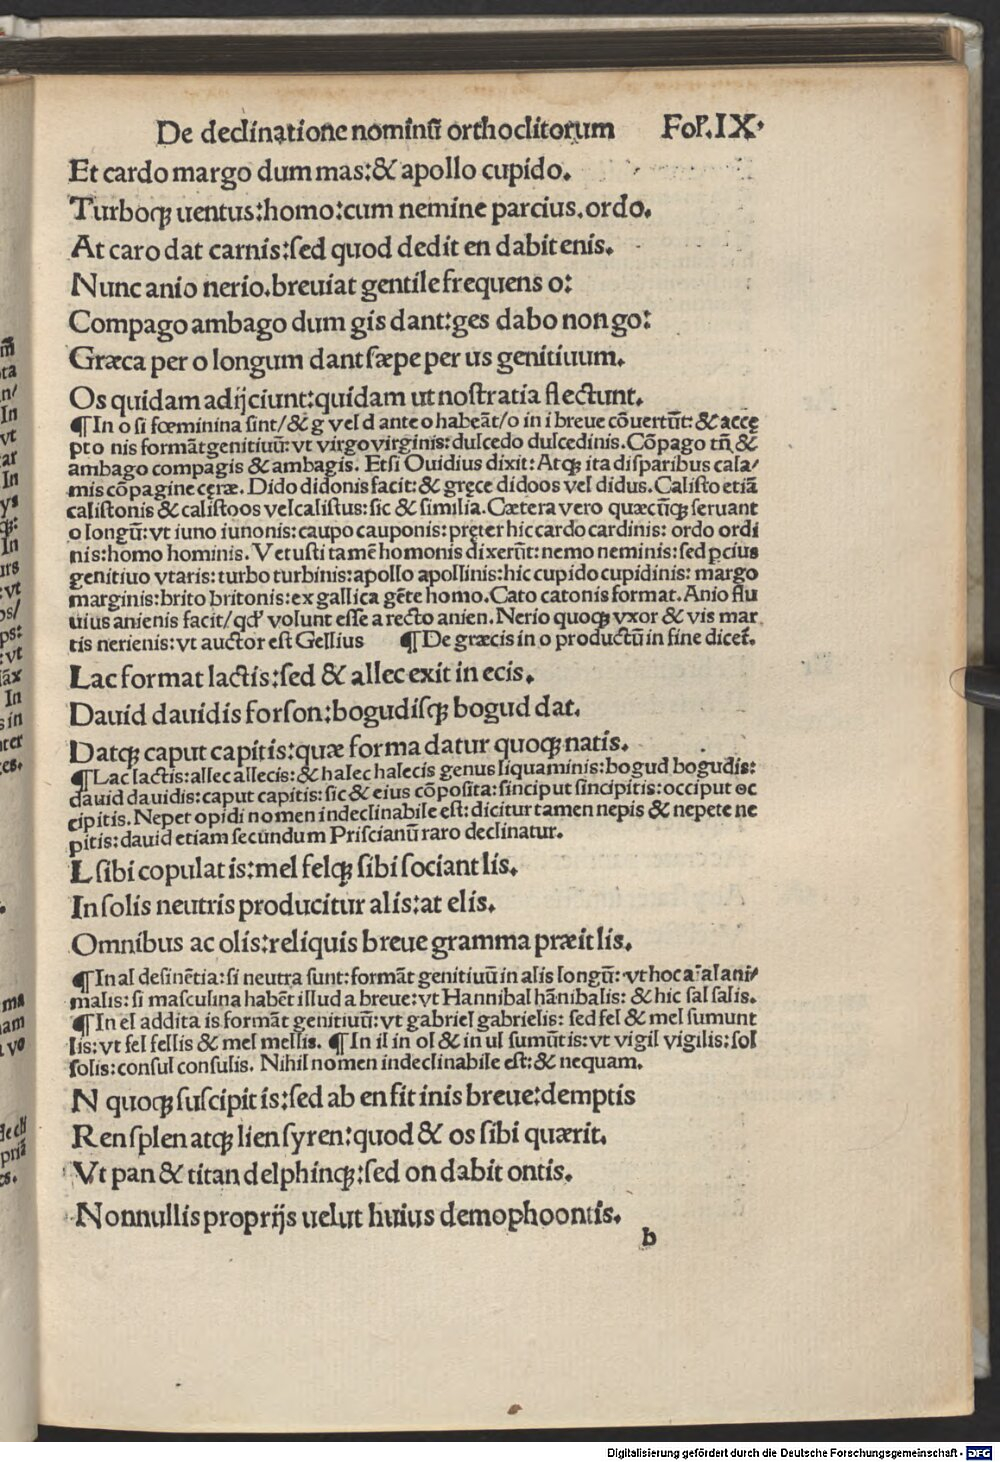 De declinatione nominū orthoclitorum Fol.IX.
Et cardo margo dum mas:& apollo cupido.
Turboqꝫ uentus:homo:cum nemine parcius.ordo.
At caro dat carnis:sed quod dedit en dabit enis.
Nunc anio nerio.breuiat gentile frequens o:
Compago ambago dum gis dant:ges dabo non go:
Græca per o longum dant sæpe per us genitiuum.
Os quidam adijciunt:quidam ut nostratia flectunt.
¶In o si fœminina sint/& g vel d ante o habeāt/o in i breue cōuertūt:& accę
pto nis formāt genitiuū: vt virgo virginis: dulcedo dulcedinis. Cōpago tn̄ &
ambago compagis & ambagis. Etsi Ouidius dixit: Atqꝫ ita disparibus cala/
mis cōpagine cęræ. Dido didonis facit: & gręce didoos vel didus. Calisto etiā
calistonis & calistoos vel calistus: sic & similia. Cætera vero quæcūqꝫ seruant
o longū: vt iuno iunonis: caupo cauponis: pręter hic cardo cardinis: ordo ordi
nis: homo hominis. Vetusti tamē homonis dixerūt: nemo neminis: sed ꝑcius
genitiuo vtaris: turbo turbinis: apollo apollinis: hic cupido cupidinis: margo
marginis: brito britonis: ex gallica gēte homo. Cato catonis format. Anio flu
uius anienis facit/qd' volunt esse a recto anien. Nerio quoqꝫ vxor & vis mar
tis nerienis: vt auctor est Gellius ¶De græcis in o productū in fine dicet̄.
Lac format lactis:sed & allec exit in ecis.
Dauid dauidis forson:bogudisqꝫ bogud dat.
Datqꝫ caput capitis:quæ forma datur quoqꝫ natis.
¶Lac lactis: allec allecis: & halec halecis genus liquaminis: bogud bogudis:
dauid dauidis: caput capitis: sic & eius cōposita: sinciput sincipitis: occiput oc
cipitis. Nepet opidi nomen indeclinabile est: dicitur tamen nepis & nepete ne
pitis: dauid etiam secundum Priscianū raro declinatur.
L sibi copulat is:mel felqꝫ sibi sociant lis.
In solis neutris producitur alis:at elis.
Omnibus ac olis:reliquis breue gramma præit lis.
¶In al desinētia: si neutra sunt: formāt genitiuū in alis longū: vt hoc aīal ani/
malis: si masculina habēt illud a breue: vt Hannibal hānibalis: & hic sal salis.
¶In el addita is formāt genitiuū: vt gabriel gabrielis: sed fel & mel sumunt
lis: vt fel fellis & mel mellis. ¶In il in ol & in ul sumūt is: vt vigil vigilis: sol
solis: consul consulis. Nihil nomen indeclinabile est: & nequam.
N quoqꝫ suscipit is:sed ab en fit inis breue:demptis
Ren splen atqꝫ lien syren:quod & os sibi quærit.
Vt pan & titan delphinqꝫ:sed on dabit ontis.
Nonnullis proprijs uelut huius demophoontis.
b
Digitalisierung gefördert durch die Deutsche Forschungsgemeinschaft - DFG